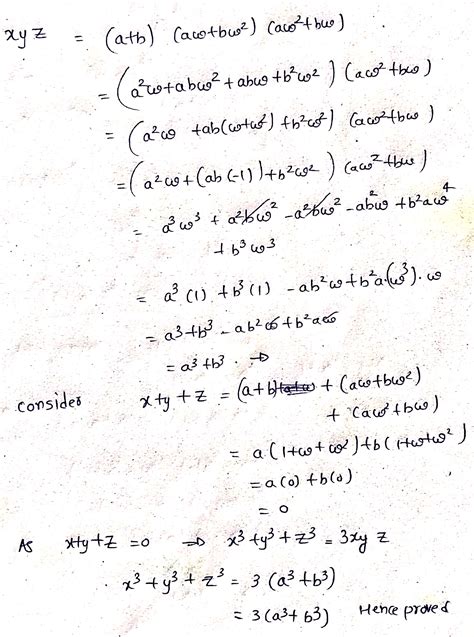 xyz = (a+b) (aω+bω²) (aω²+bω)
= (a²ω+abω²+abω+b²ω²) (aω²+bω)
= (a²ω +ab(ω+ω²)+b²ω²) (aω²+bω)
= (a²ω+(ab(-1))+b²ω²) (aω²+bω)
= a³ω³ + a²bω² -a²bω² -ab²ω +b²aω⁴
+b³ω³
= a³(1) +b³(1) -ab²ω+b²a(ω³).ω
= a³+b³ -ab²ω+b²aω
= a³+b³. ⇒
consider x+y+z = (a+b) + (aω+bω²)
+ (aω²+bω)
= a(1+ω+ω²)+b(1+ω+ω²)
= a(0)+b(0)
= 0
As x+y+z=0 ⇒ x³+y³+z³ = 3xyz
x³+y³+z³ = 3(a³+b³)
= 3(a³+b³) Hence proved